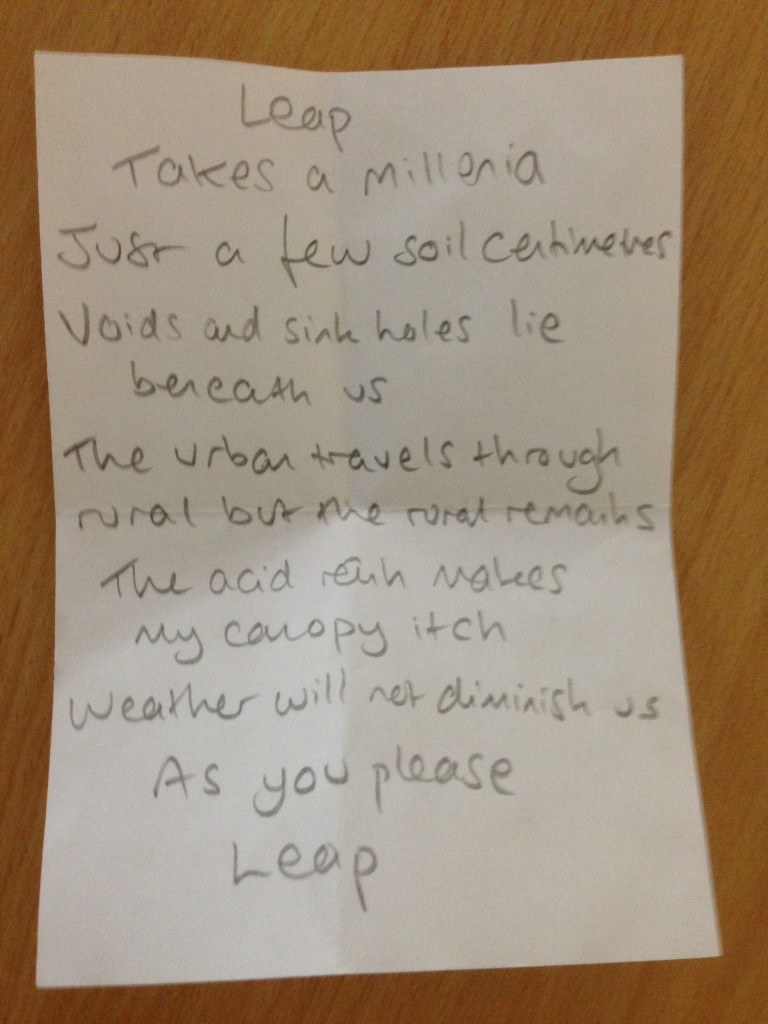 Leap
Takes a millenia
Just a few soil centimetres
Voids and sink holes lie
beneath us
The urban travels through
rural but the rural remains
The acid rain makes
my canopy itch
Weather will not diminish us
As you please
Leap